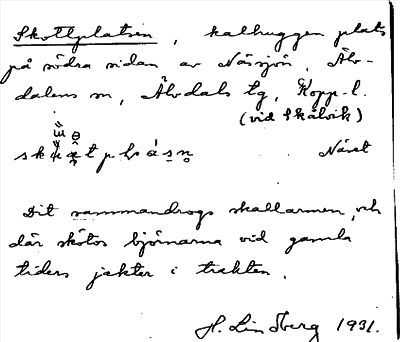 Skottplatsen, kalhuggen plats
på södra sidan av Nässjön, Älv-
dalens sn, Älvdals tg, Kopp. l.
(vid Skålvik)
Näset
Dit sammandrogs skallarmen, och
där skötos björnarna vid gamla
tiders jakter i trakten.
H. Lindberg 1931.